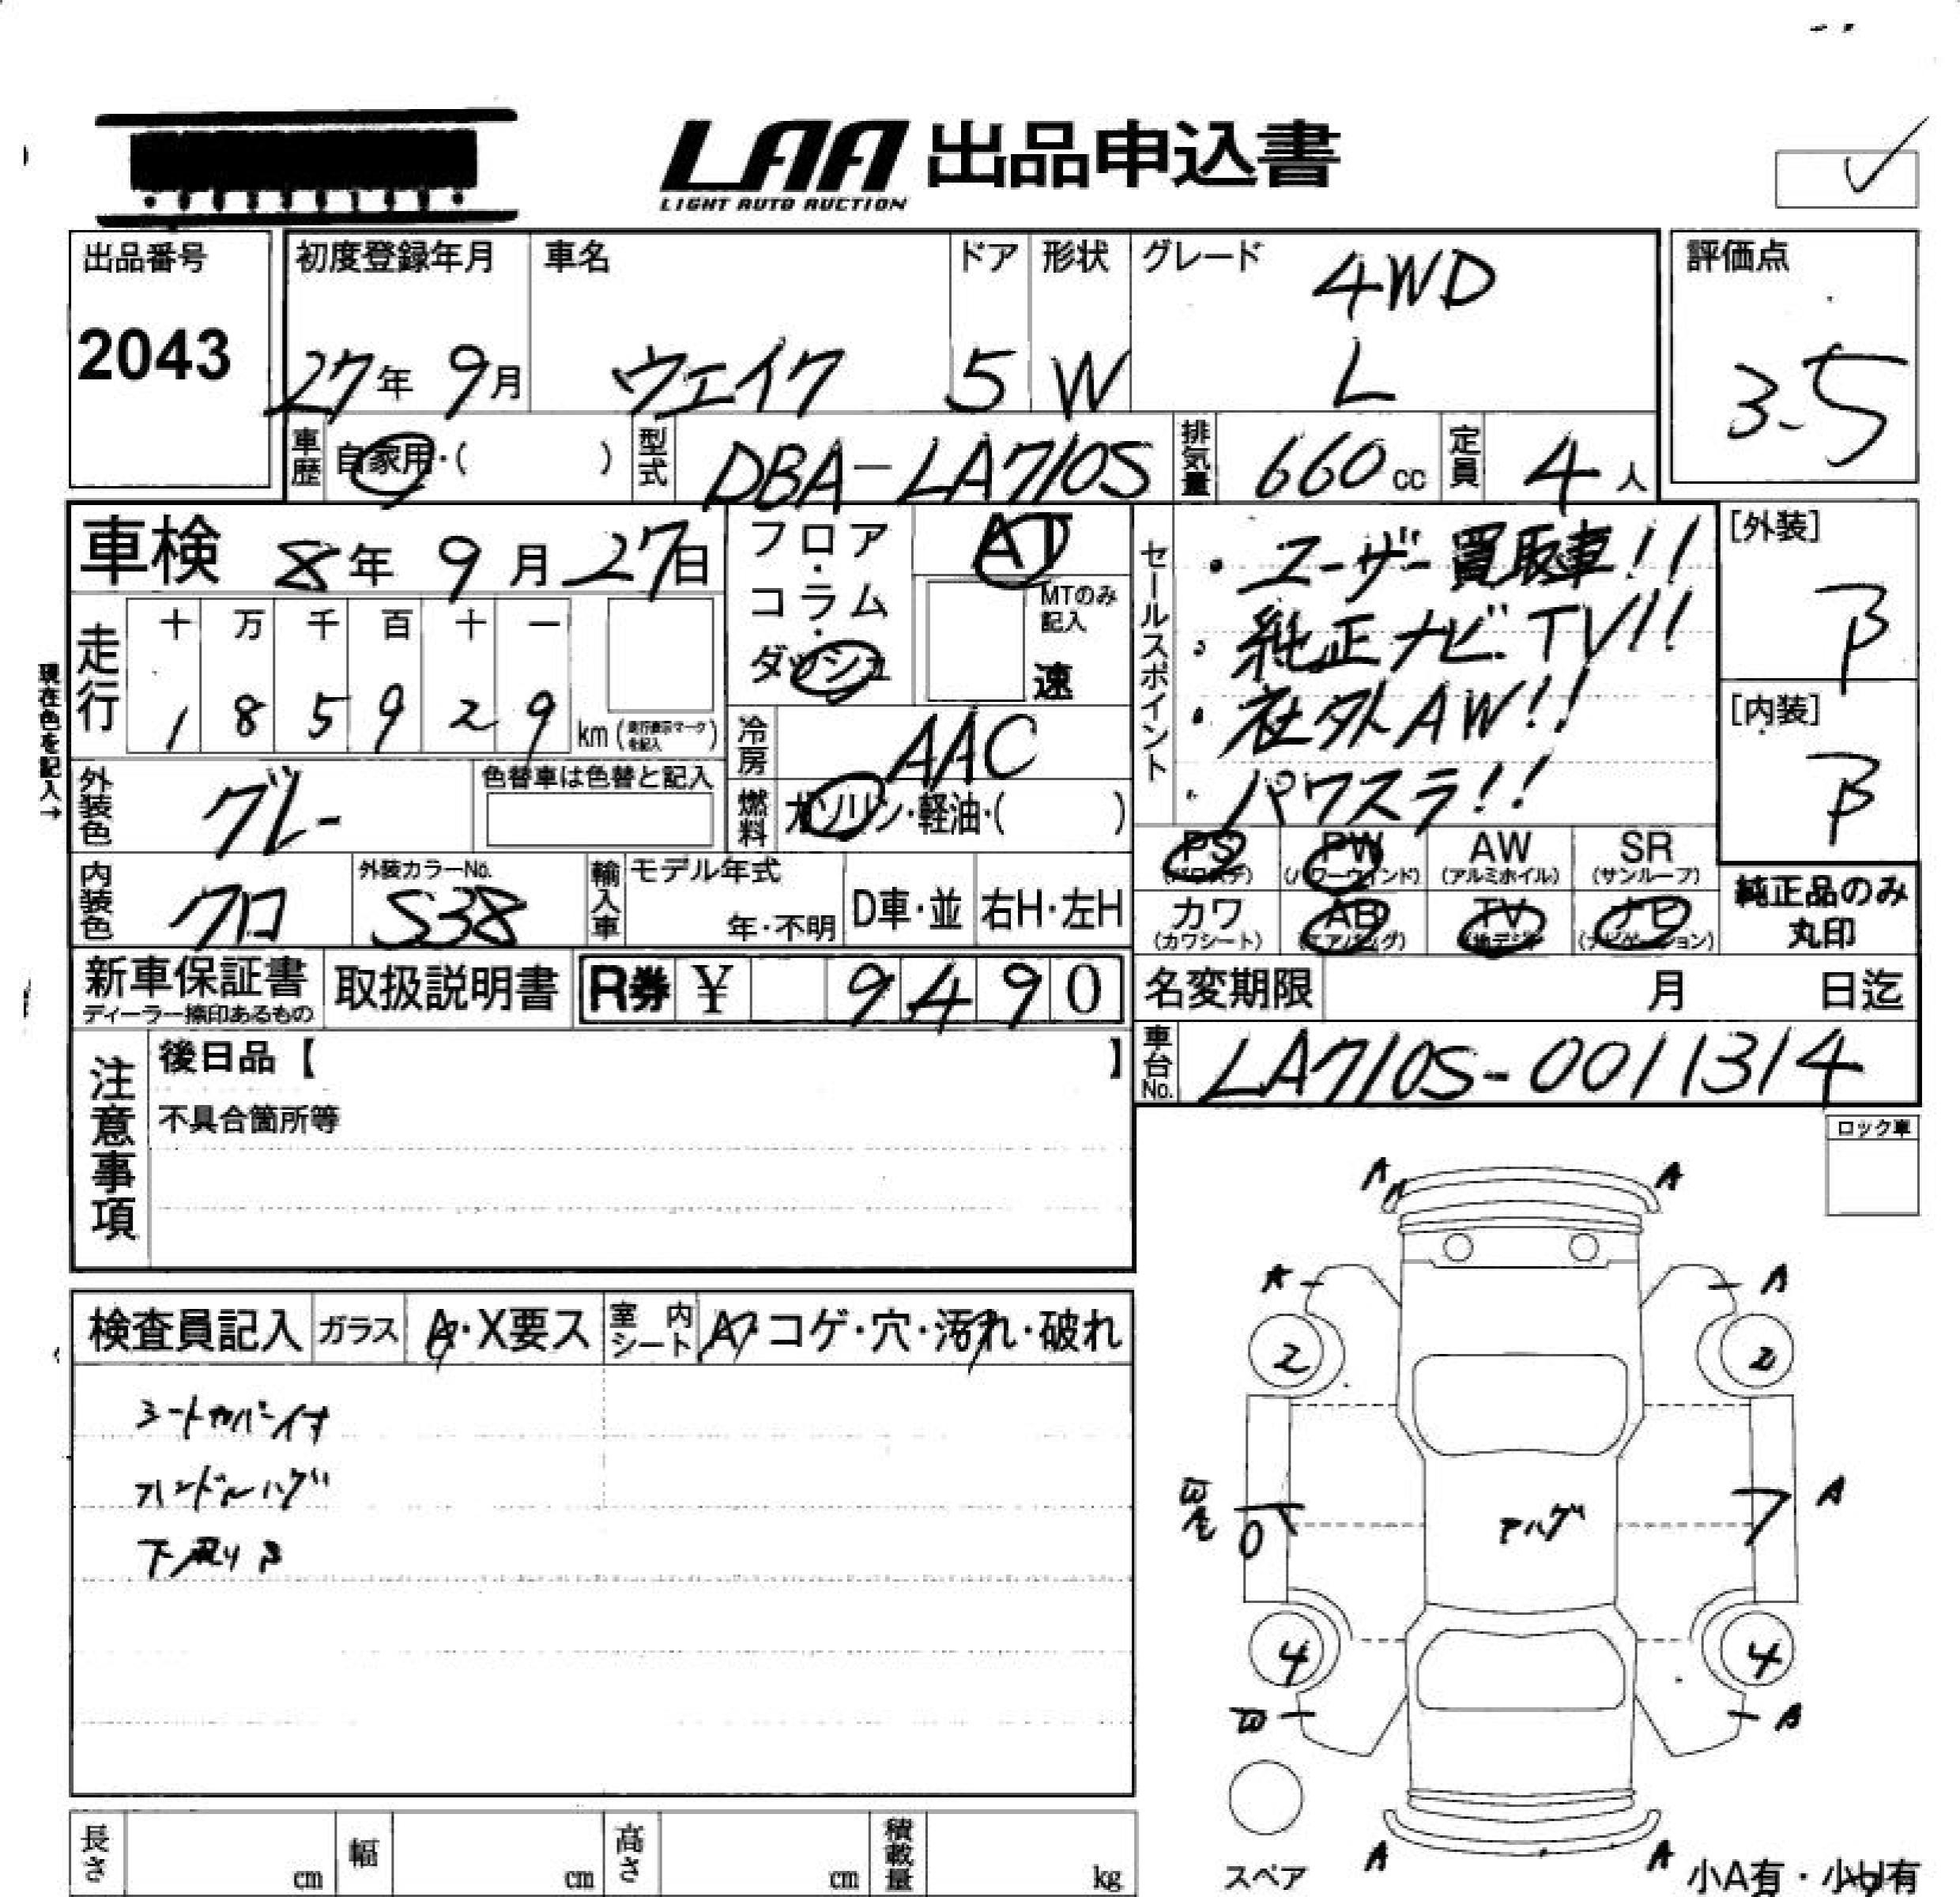 LAA 出品申込書
LIGHT AUTO AUCTION
出品番号
2043
初度登録年月
27年 9月
車名
ウェイク
ドア
5
形状
W
グレード
4WD
L
評価点
3.5
車歴
自家用・( )
型式
DBA-LA710S
排気量
660cc
定員
4人
車検 8年 9月 27日
フロア・コラム・ダッシュ
AT
MTのみ記入
速
現在色を記入→
走行
十 万 千 百 十 一
1 8 5 9 2 9 km (走行表示マークを記入)
冷房
AAC
燃料
ガソリン・軽油・( )
外装色
グレー
色替車は色替と記入
内装色
クロ
外装カラーNo.
S38
輸入車
モデル年式
年・不明
D車・並
右H・左H
セールスポイント
・ユーザー買取車!!
・純正ナビ.TV!!
・社外AW!!
・パワスラ!!
[外装]
B
[内装]
B
PS (パワステ)
PW (パワーウィンド)
AW (アルミホイル)
SR (サンルーフ)
カワ (カワシート)
AB (エアバッグ)
TV (地デジ)
ナビ (ナビゲーション)
純正品のみ丸印
新車保証書
ディーラー捺印あるもの
取扱説明書
R券 ¥ 9490
名変期限 月 日迄
車台No.
LA710S-0011314
注意事項
後日品【 】
不具合箇所等
ロック車
検査員記入
ガラス
A・X要ス
室内シート
A・コゲ・穴・汚れ・破れ
シートカバー付
ハンドルハゲ
下廻りS
A A
A A
A A
2 2
W A
A
7
テハゲ
4 4
W B
スペア
A A
小A有・小U有
長さ cm
幅 cm
高さ cm
積載量 kg